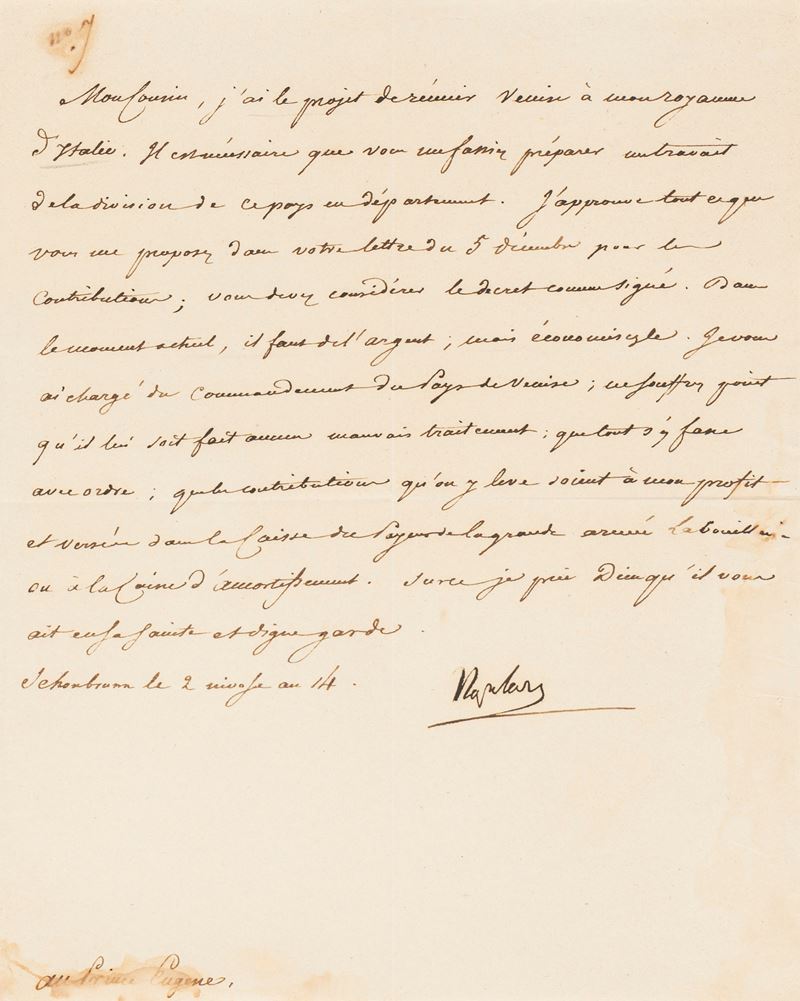 no. 7
Mon Cousin, j'ai le projet de réunir Venise à mon royaume
d'Italie. Il est nécessaire que vous me fassiez préparer un travail
de la division de ce pays en département. J'approuve tout ce que
vous me proposez dans votre lettre du 5 décembre pour les
Contributions; vous devez considérer le decret comme signé. Dans
le moment actuel, il faut de l'argent; mais économisez le. Je vous
ai chargé du Commandement du Pays de Venise; ne souffrez point
qu'il lui soit fait aucun mauvais traitement; que tout s'y fasse
avec ordre; que les contributions qu'on y leve soient à mon profit
et versées dans la Caisse du Payeur de la grande armée Labouill
ou à la Caisse d'Amortissement. Sur ce je prie Dieu qu'il vous
ait en sa sainte et digne garde.
Schonbrunn le 2 nivose an 14.
au Prince Eugene.